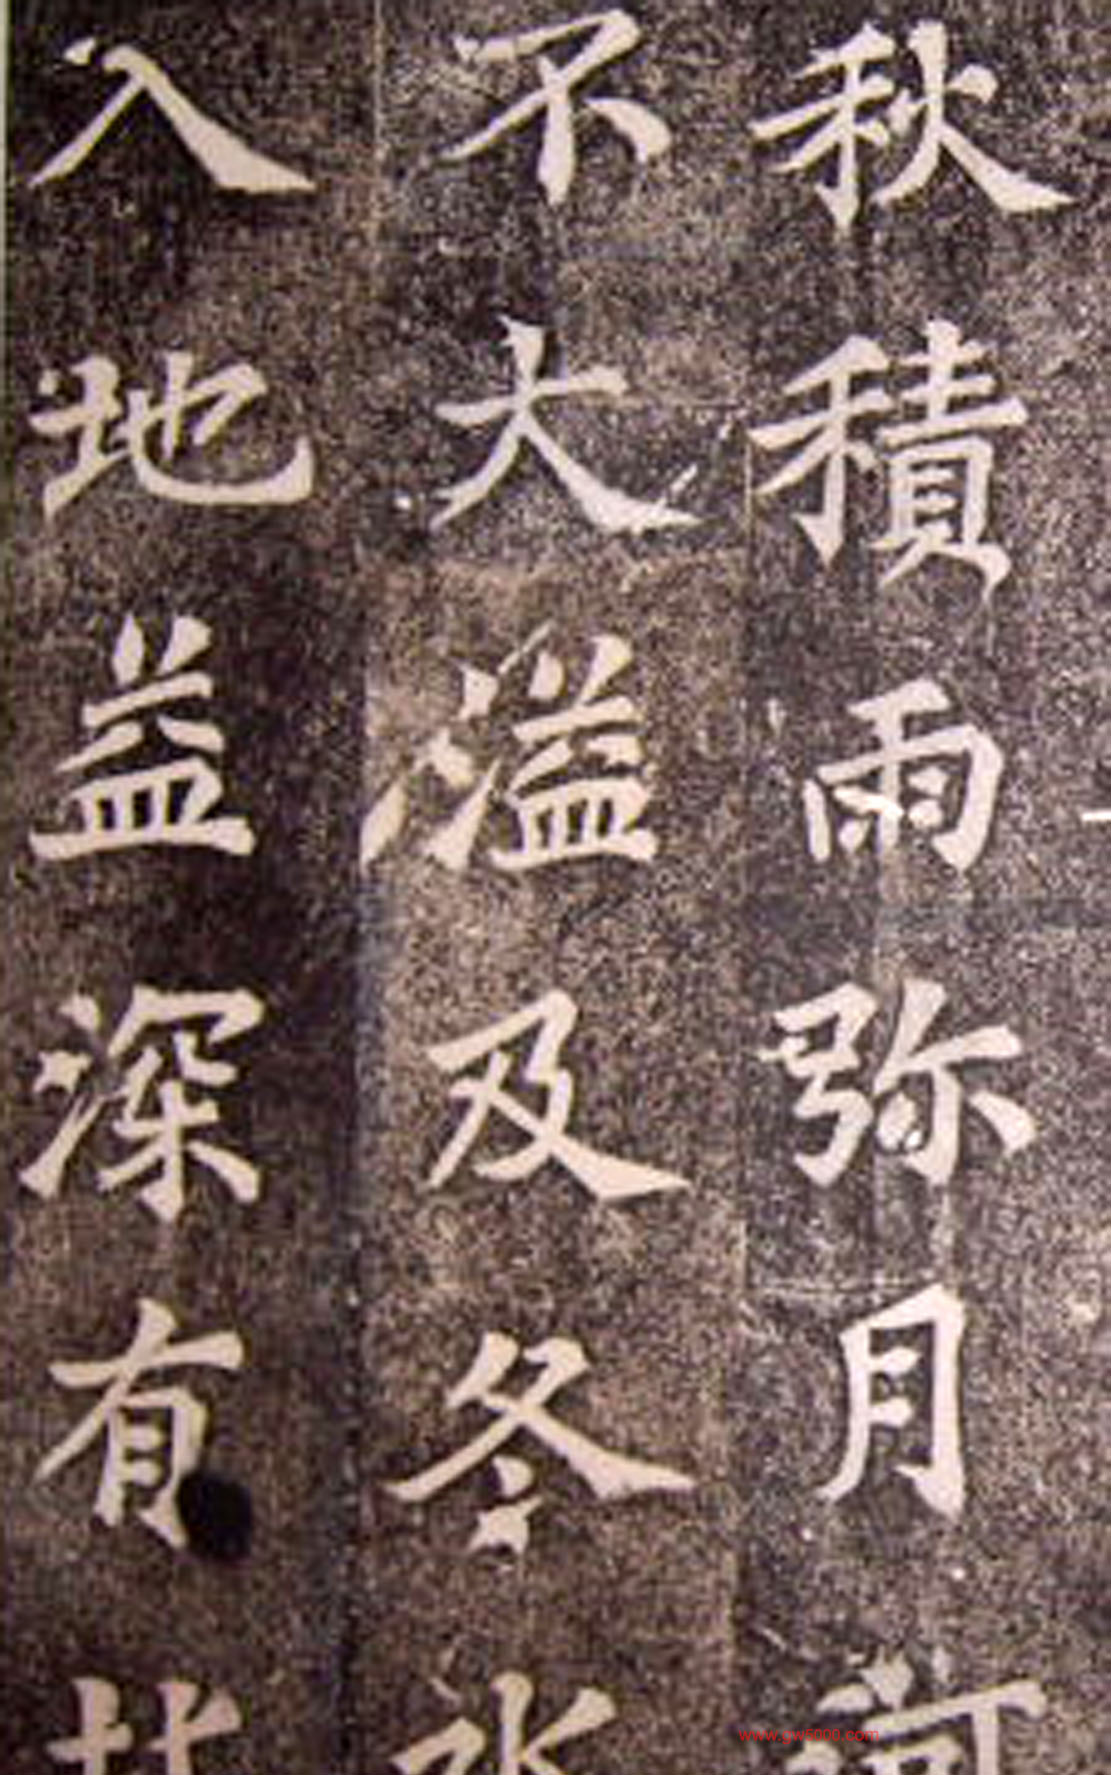 秋積雨弥月河
不大溢及冬水
入地益深有
www.gw5000.com